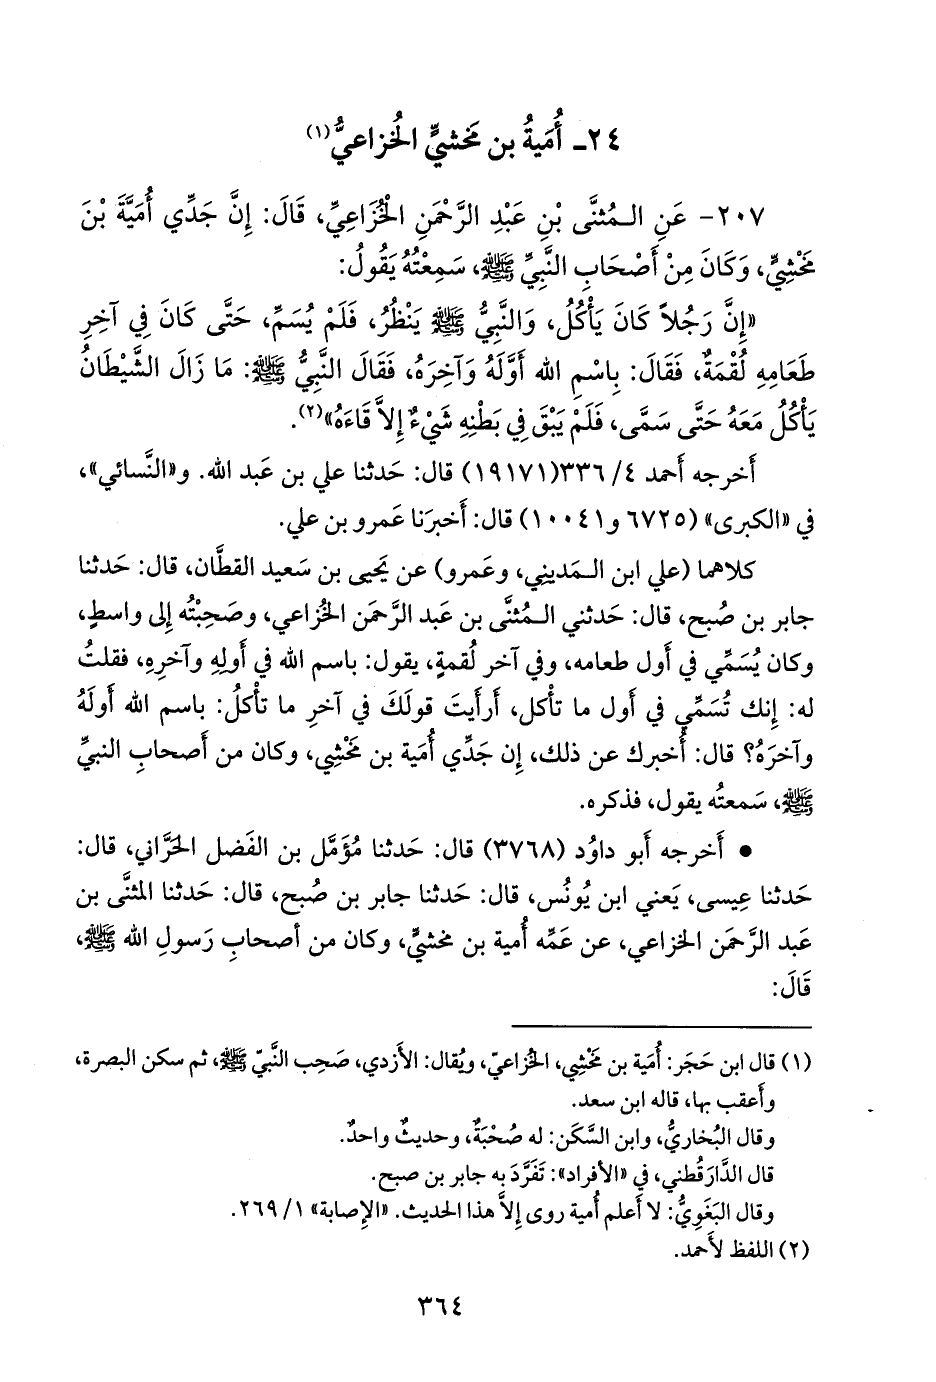 ٢٤ـ أُمَيةُ بن مَخشيٍّ الخُزاعيُّ(١)
٢٠٧- عَنِ الـمُثنَّى بْنِ عَبْدِ الرَّحْمَنِ الْخُزَاعِيِّ، قَالَ: إِنَّ جَدِّي أُمَيَّةَ بْنَ
مَخْشِيٍّ، وَكَانَ مِنْ أَصْحَابِ النَّبِيِّ ﷺ، سَمِعْتُهُ يَقُولُ:
«إِنَّ رَجُلاً كَانَ يَأْكُلُ، وَالنَّبِيُّ ﷺ يَنْظُرُ، فَلَمْ يُسَمِّ، حَتَّى كَانَ فِي آخِرِ
طَعَامِهِ لُقْمَةٌ، فَقَالَ: بِاسْمِ الله أَوَّلَهُ وَآخِرَهُ، فَقَالَ النَّبِيُّ ﷺ: مَا زَالَ الشَّيْطَانُ
يَأْكُلُ مَعَهُ حَتَّى سَمَّى، فَلَمْ يَبْقَ فِي بَطْنِهِ شَيْءٌ إِلاَّ قَاءَهُ»(٢).
أَخرجه أَحمد ٤/ ٣٣٦(١٩١٧١) قال: حَدثنا علي بن عَبد الله. و«النَّسائي»،
في «الكبرى» (٦٧٢٥ و١٠٠٤١) قال: أَخبرَنا عَمرو بن علي.
كلاهما (علي ابن الـمَديني، وعَمرو) عن يَحيى بن سَعيد القطَّان، قال: حَدثنا
جابر بن صُبح، قال: حَدثني الـمُثنَّى بن عَبد الرَّحمَن الخُزاعي، وصَحِبْتُه إِلى واسطٍ،
وكان يُسَمِّي في أَول طعامه، وفي آخر لُقمةٍ، يقول: باسم الله في أَولِهِ وآخرِهِ، فقلتُ
له: إِنك تُسَمِّي في أَول ما تأْكل، أَرأَيتَ قولَكَ في آخرِ ما تأْكلُ: باسم الله أَولَهُ
وآخرَهُ؟ قال: أُخبرك عن ذلك، إِن جَدِّي أُمَية بن مَخْشِي، وكان من أَصحابِ النبيِّ
ﷺ، سَمعتُه يقول، فذكره.
• أَخرجه أَبو داوُد (٣٧٦٨) قال: حَدثنا مُؤَمَّل بن الفَضل الحَرَّاني، قال:
حَدثنا عِيسى، يَعني ابن يُونُس، قال: حَدثنا جابر بن صُبح، قال: حَدثنا المثنَّى بن
عَبد الرَّحمَن الخزاعي، عن عَمِّه أُمية بن مخشيٍّ، وكان من أصحابِ رَسولِ الله ﷺ،
قَالَ:
(١) قال ابن حَجَر: أُمَية بن مَخْشِي، الخُزاعيّ، ويُقال: الأَزدي، صَحِب النَّبيّ ﷺ، ثم سكن البصرة،
وأَعقب بها، قاله ابن سعد.
وقال البُخاريُّ، وابن السَّكَن: له صُحْبَةٌ، وحديثٌ واحدٌ.
قال الدَّارَقُطني، في «الأفراد»: تَفَرَّدَ به جابر بن صبح.
وقال البَغَوِيُّ: لا أَعلم أُمية روى إِلاَّ هذا الحديث. «الإِصابة» ١/ ٢٦٩.
(٢) اللفظ لأَحمد.
٣٦٤